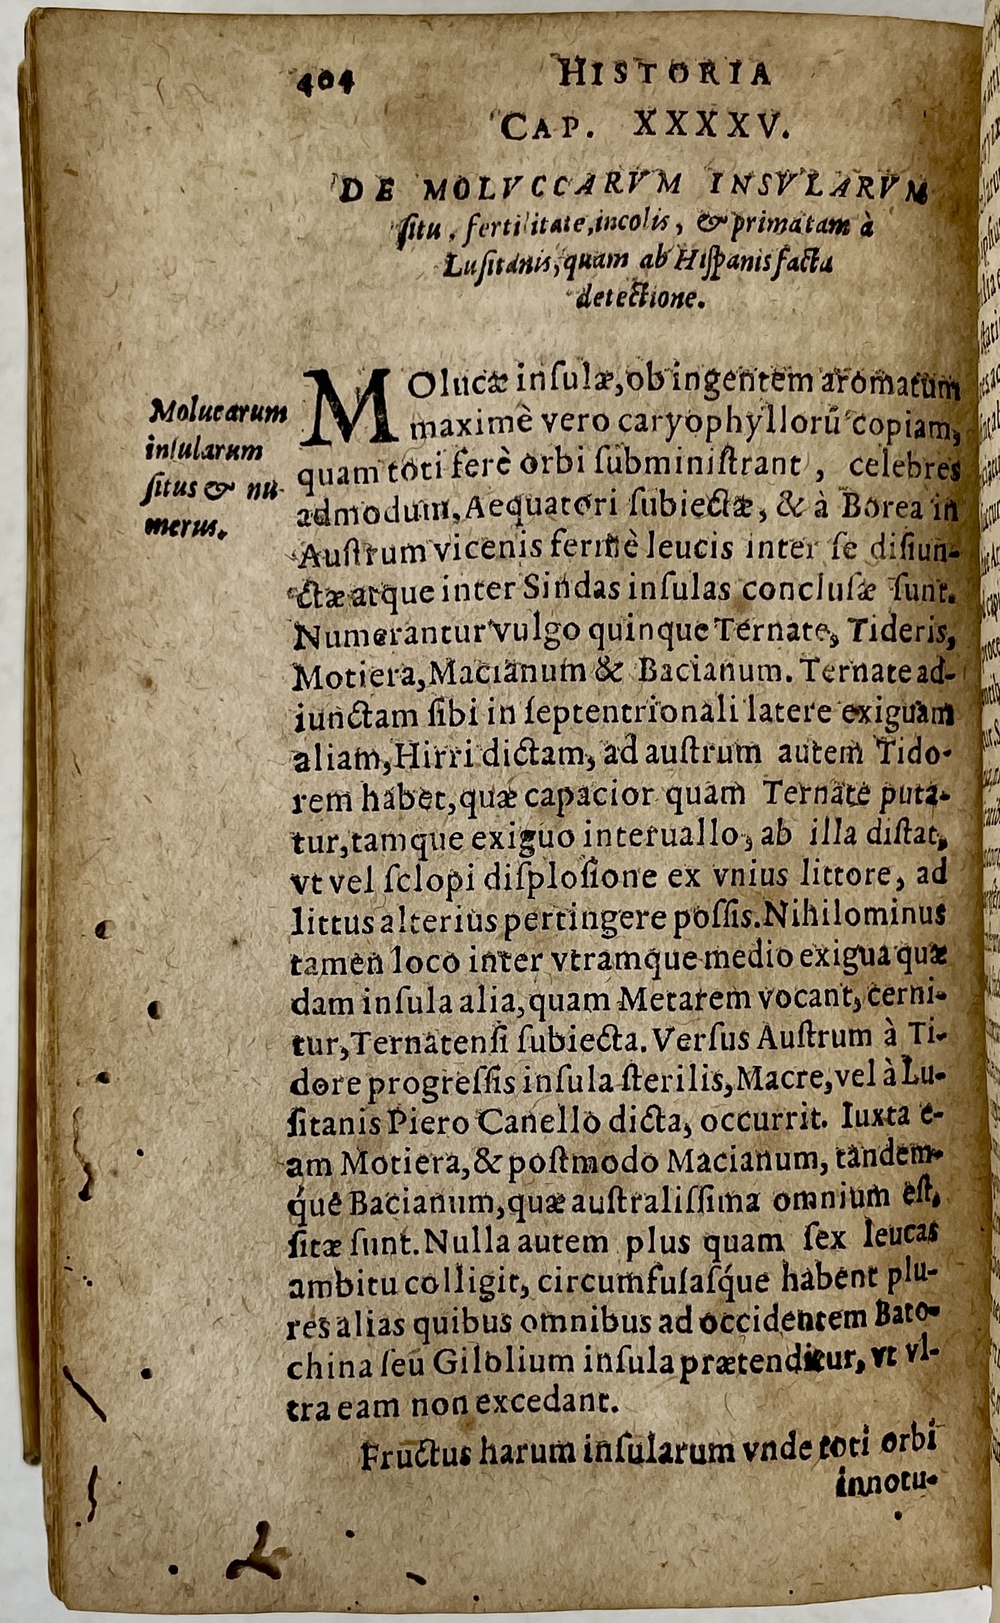 404 HISTORIA
CAP. XXXXV.
DE MOLVCCARVM INSVLARVM
ſitu, fertilitate, incolis, & primàtam à
Luſitanis, quam ab Hiſpanis facta
detectione.
Molucarum
inſularum
ſitus & nu-
merus.
MOlucæ inſulæ, ob ingentem aromatum
maximè vero caryophyllorũ copiam,
quam toti ferè orbi ſubminiſtrant, celebres
admodum, Aequatori ſubiectæ, & à Borea in
Auſtrum vicenis fermè leucis inter ſe diſiun-
ctæ atque inter Sindas inſulas concluſæ ſunt.
Numerantur vulgo quinque Ternate, Tideris,
Motiera, Macianum & Bacianum. Ternate ad-
iunctam ſibi in ſeptentrionali latere exiguam
aliam, Hirri dictam, ad auſtrum autem Tido-
rem habet, quæ capacior quam Ternate puta-
tur, tamque exiguo interuallo, ab illa diſtat,
vt vel ſclopi diſploſione ex vnius littore, ad
littus alterius pertingere poſſis. Nihilominus
tamen loco inter vtramque medio exigua quæ
dam inſula alia, quam Metarem vocant, cerni-
tur, Ternatenſi ſubiecta. Verſus Auſtrum à Ti-
dore progreſſis inſula ſterilis, Macre, vel à Lu-
ſitanis Piero Canello dicta, occurrit. Iuxta e-
am Motiera, & poſtmodo Macianum, tandem-
q́ue Bacianum, quæ auſtraliſſima omnium eſt,
ſitæ ſunt. Nulla autem plus quam ſex leucas
ambitu colligit, circumfuſaſq́ue habent plu-
res alias quibus omnibus ad occidentem Bato-
china ſeu Gilolium inſula prætenditur, vt vl-
tra eam non excedant.
Fructus harum inſularum vnde toti orbi
innotu-